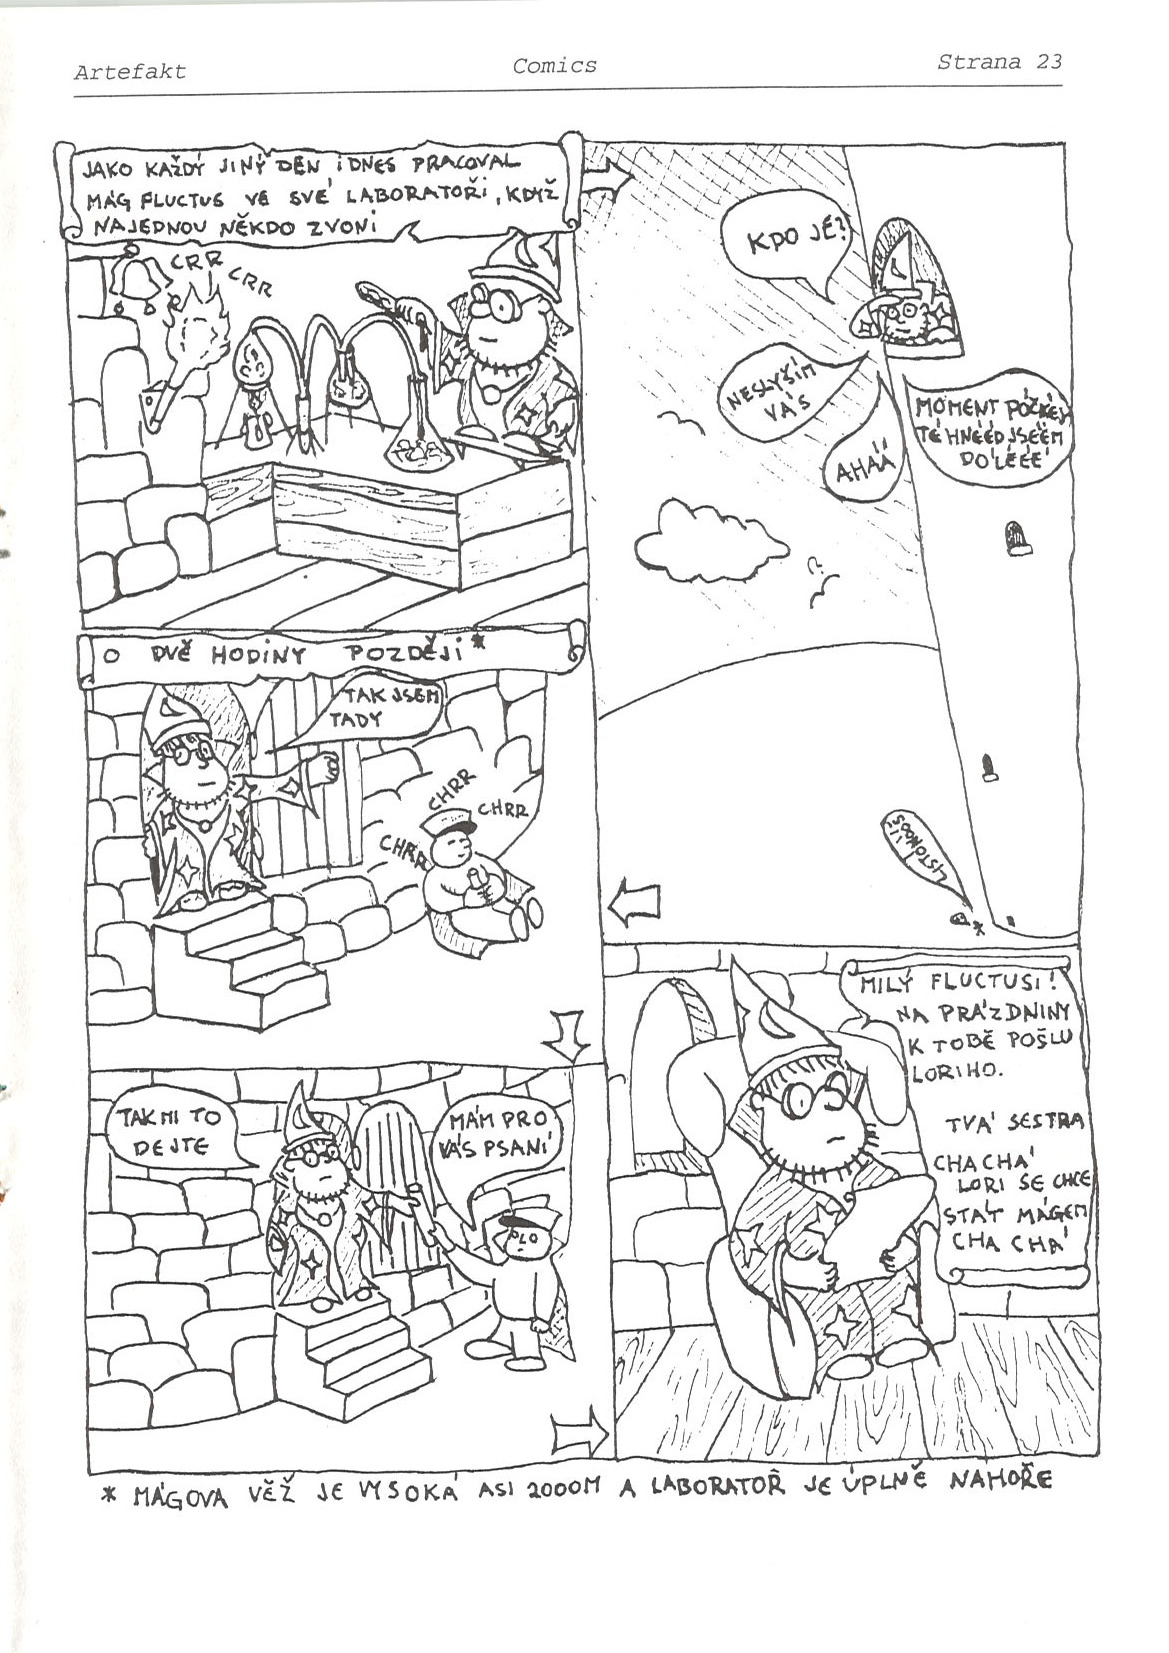 Artefakt
Comics
Strana 23
JAKO KAŽDÝ JINÝ DEN, I DNES PRACOVAL
MÁG FLUCTUS VE SVÉ LABORATOŘI, KDYŽ
NAJEDNOU NĚKDO ZVONI
CRR
CRR
KDO JE?
NESLYŠÍM
VÁS
AHÁÁ
MOMENT POČKEJ
TÉ HNÉÉD JSÉÉM
DOLÉÉÉ
LISTONOO
ŠII
*
O DVĚ HODINY POZDĚJI *
TAK JSEM
TADY
CHRR
CHRR
CHRR
TAK MI TO
DEJTE
MÁM PRO
VÁS PSANÍ
PLO
MILÝ FLUCTUSI!
NA PRÁZDNINY
K TOBĚ POŠLU
LORIHO.
TVÁ SESTRA
CHACHÁ
LORI SE CHCE
STÁT MÁGEM
CHA CHÁ
* MÁGOVA VĚŽ JE VYSOKÁ ASI 2000M A LABORATOŘ JE ÚPLNĚ NAHOŘE